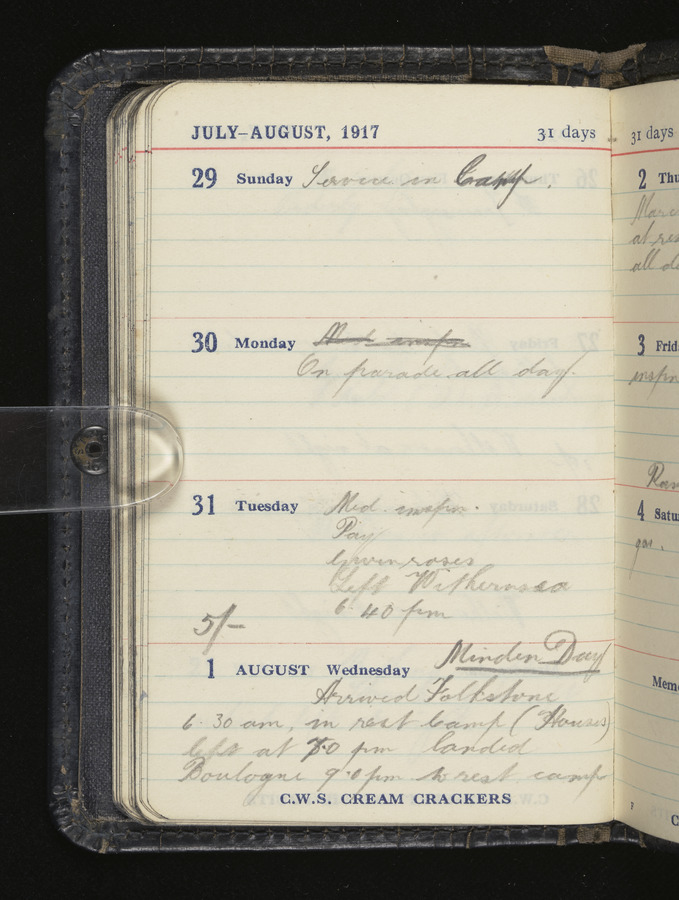 JULY–AUGUST, 1917 31 days
29 Sunday Service in Camp.
30 Monday Med. inspn
On parade all day.
31 Tuesday Med. inspn.
Pay
given roses
Left Withernsea
6.40 pm
5/-
1 AUGUST Wednesday Minden Day
Arrived Folkstone
6.30 am, in rest camp (Houses)
left at 7.0 pm landed
Boulogne 9.0 pm to rest camp
C.W.S. CREAM CRACKERS
31 days
2 Thu
at
all
3 Frid
inspn
4 Satu
gas.
Mem
F
C